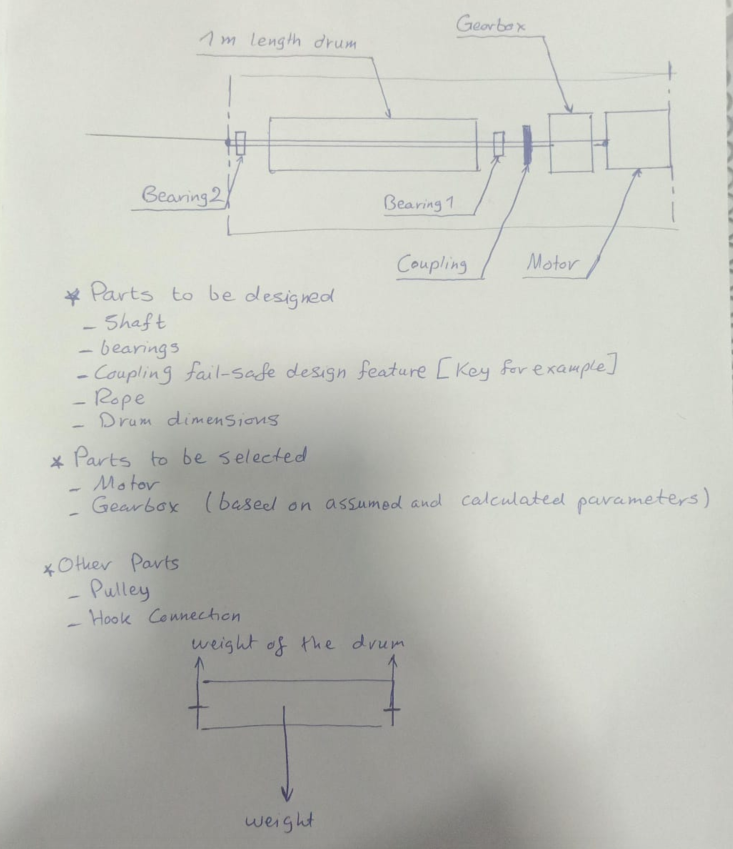 Gearbox
1m length drum
Bearing2
Bearing1
Coupling
Motor
* Parts to be designed
- Shaft
- bearings
- Coupling fail-safe design feature [Key for example]
- Rope
- Drum dimensions
* Parts to be selected
- Motor
- Gearbox (based on assumed and calculated parameters)
* Other Parts
- Pulley
- Hook Connection
weight of the drum
weight